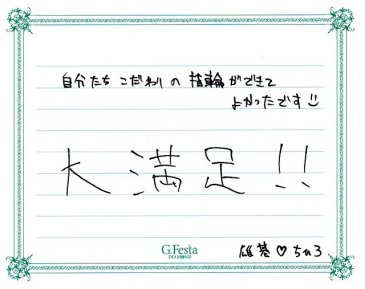 自分たち こだわりの 指輪ができて
よかったです
大満足!!
G.Festa
DIAMOND
雄基♡ちひろ